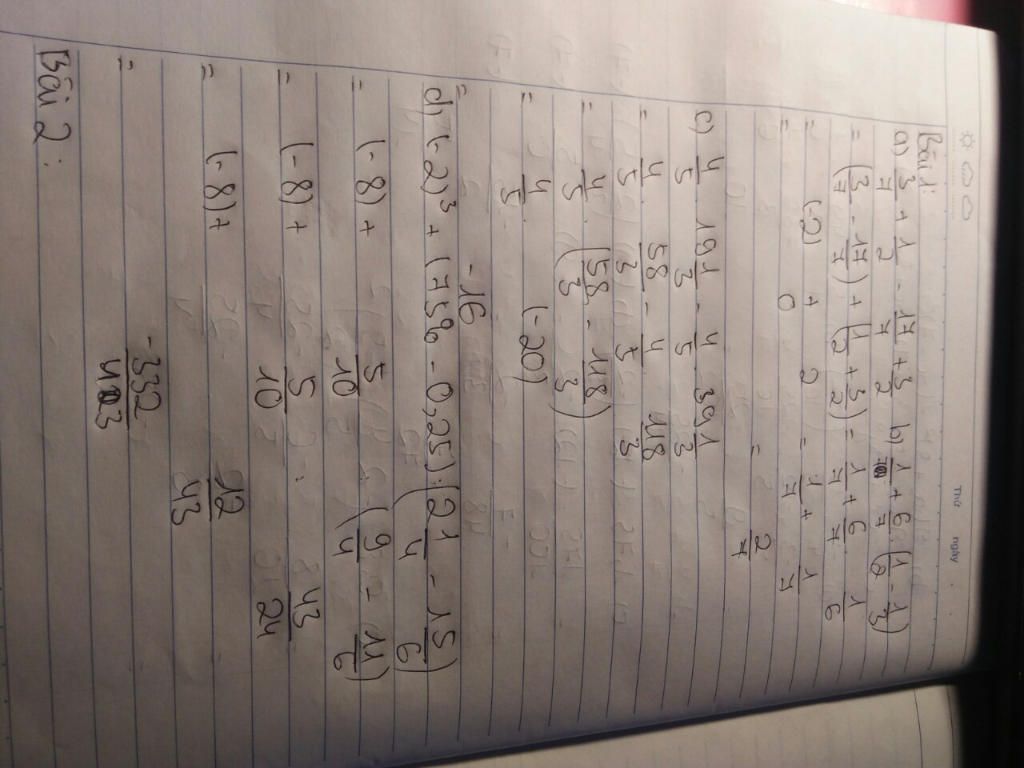 Thứ ngày
Bài 1:
a) 3/7 + 1/2 - 17/7 + 3/2 b) 1/7 + 6/7 (1/2 - 1/3)
= (3/7 - 17/7) + (1/2 + 3/2) = 1/7 + 6/7 1/6
= (-2) + 2 = 1/7 + 1/7
= 0
= 2/7
c) 4/5 . 19 1/3 - 4/5 . 39 1/3
= 4/5 . 58/3 - 4/5 . 118/3
= 4/5 (58/3 - 118/3)
= 4/5 (-20)
= -16
d) (-2)³ + (75% - 0,25) : (2 1/4 - 1 5/6)
= (-8) + 5/10 (9/4 - 11/6)
= (-8) + 5/10 : 43/24
= (-8) + 12/43
= -332/43
Bài 2: